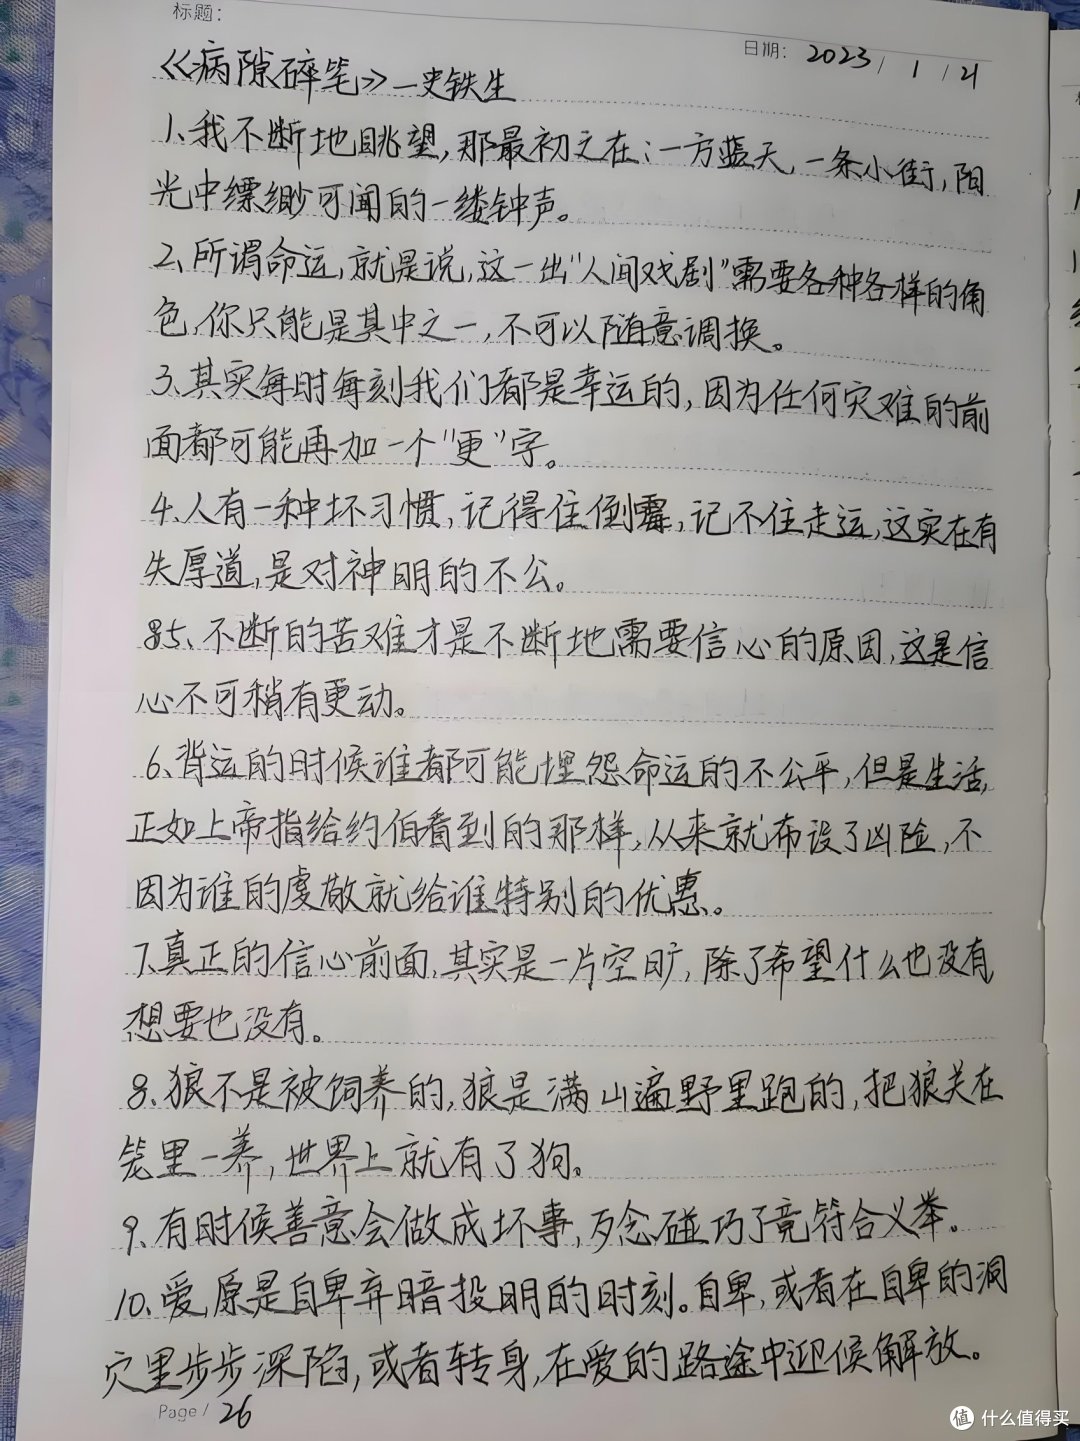 标题：
日期： 2023 / 1 / 21
《病隙碎笔》—史铁生
1、我不断地眺望，那最初之在：一方蓝天，一条小街，阳
光中缥缈可闻的一缕钟声。
2、所谓命运，就是说，这一出“人间戏剧”需要各种各样的角
色，你只能是其中之一，不可以随意调换。
3、其实每时每刻我们都是幸运的，因为任何灾难的前
面都可能再加一个“更”字。
4、人有一种坏习惯，记得住倒霉，记不住走运，这实在有
失厚道，是对神明的不公。
85、不断的苦难才是不断地需要信心的原因，这是信
心不可稍有更动。
6、背运的时候谁都可能埋怨命运的不公平，但是生活，
正如上帝指给约伯看到的那样，从来就布设了凶险，不
因为谁的虔敬就给谁特别的优惠。
7、真正的信心前面，其实是一片空旷，除了希望什么也没有，
想要也没有。
8、狼不是被饲养的，狼是满山遍野里跑的，把狼关在
笼里一养，世界上就有了狗。
9、有时候善意会做成坏事，歹念碰巧了竟符合义举。
10、爱，原是自卑弃暗投明的时刻。自卑，或者在自卑的洞
穴里步步深陷，或者转身，在爱的路途中迎候解放。
Page / 26
值 什么值得买